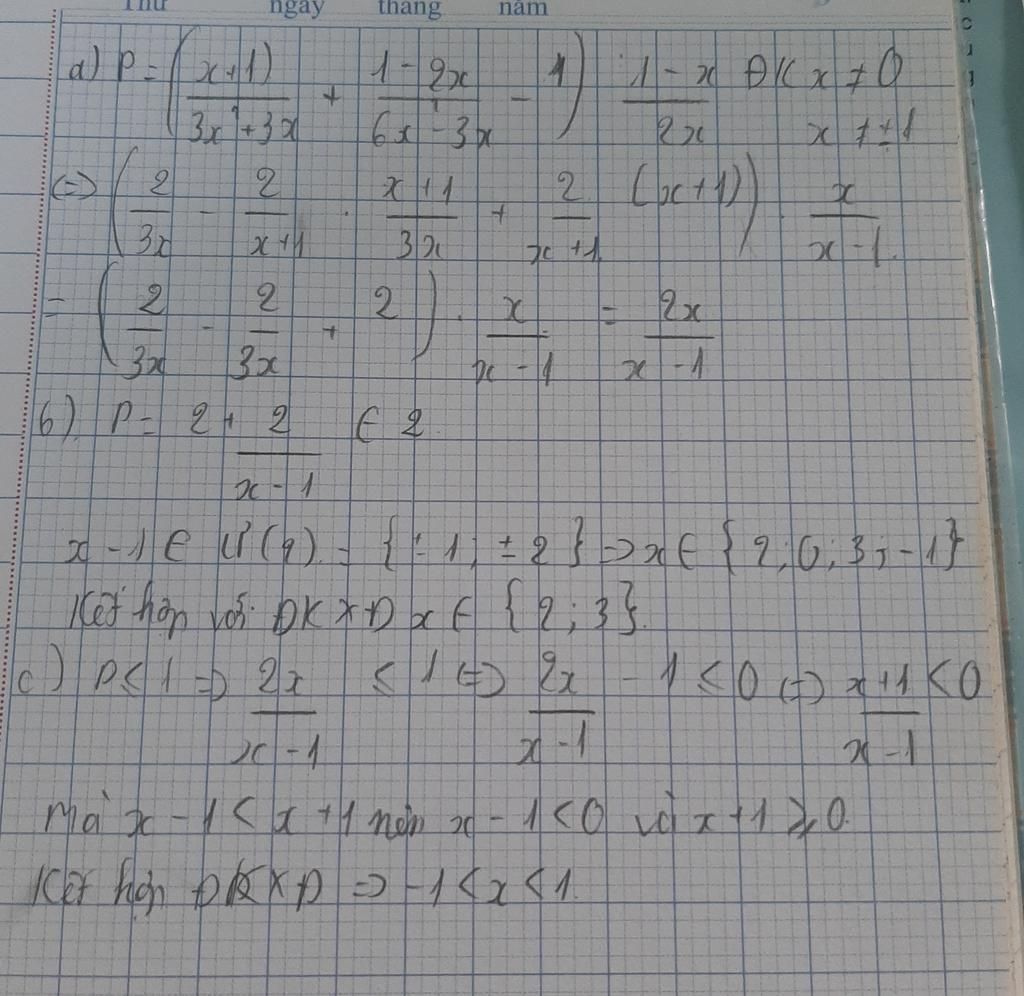 Thứ ngày tháng năm
a) P = ( (x+1) / (3x² + 3x) + (1 - 2x) / (6x² - 3x) - 1 ) (1 - x) / 2x ĐK x ≠ 0 x ≠ ±1
(=) ( 2/3x - 2/(x+1) . (x+1)/3x + 2/(x+1) (x+1) ) . x/(x-1)
= ( 2/3x - 2/3x + 2 ) . x/(x-1) = 2x/(x-1)
b) P = 2 + 2/(x-1) ∈ 2
x - 1 ∈ Ư(2) = {±1; ±2} => x ∈ {2; 0; 3; -1}
Kết hợp với ĐKXĐ x ∈ {2; 3}.
c) P ≤ 1 => 2x/(x-1) ≤ 1 (=) 2x/(x-1) - 1 ≤ 0 (=) (x+1)/(x-1) < 0
Mà x - 1 < x + 1 nên x - 1 < 0 và x + 1 ≥ 0.
Kết hợp ĐKXĐ => -1 < x < 1.